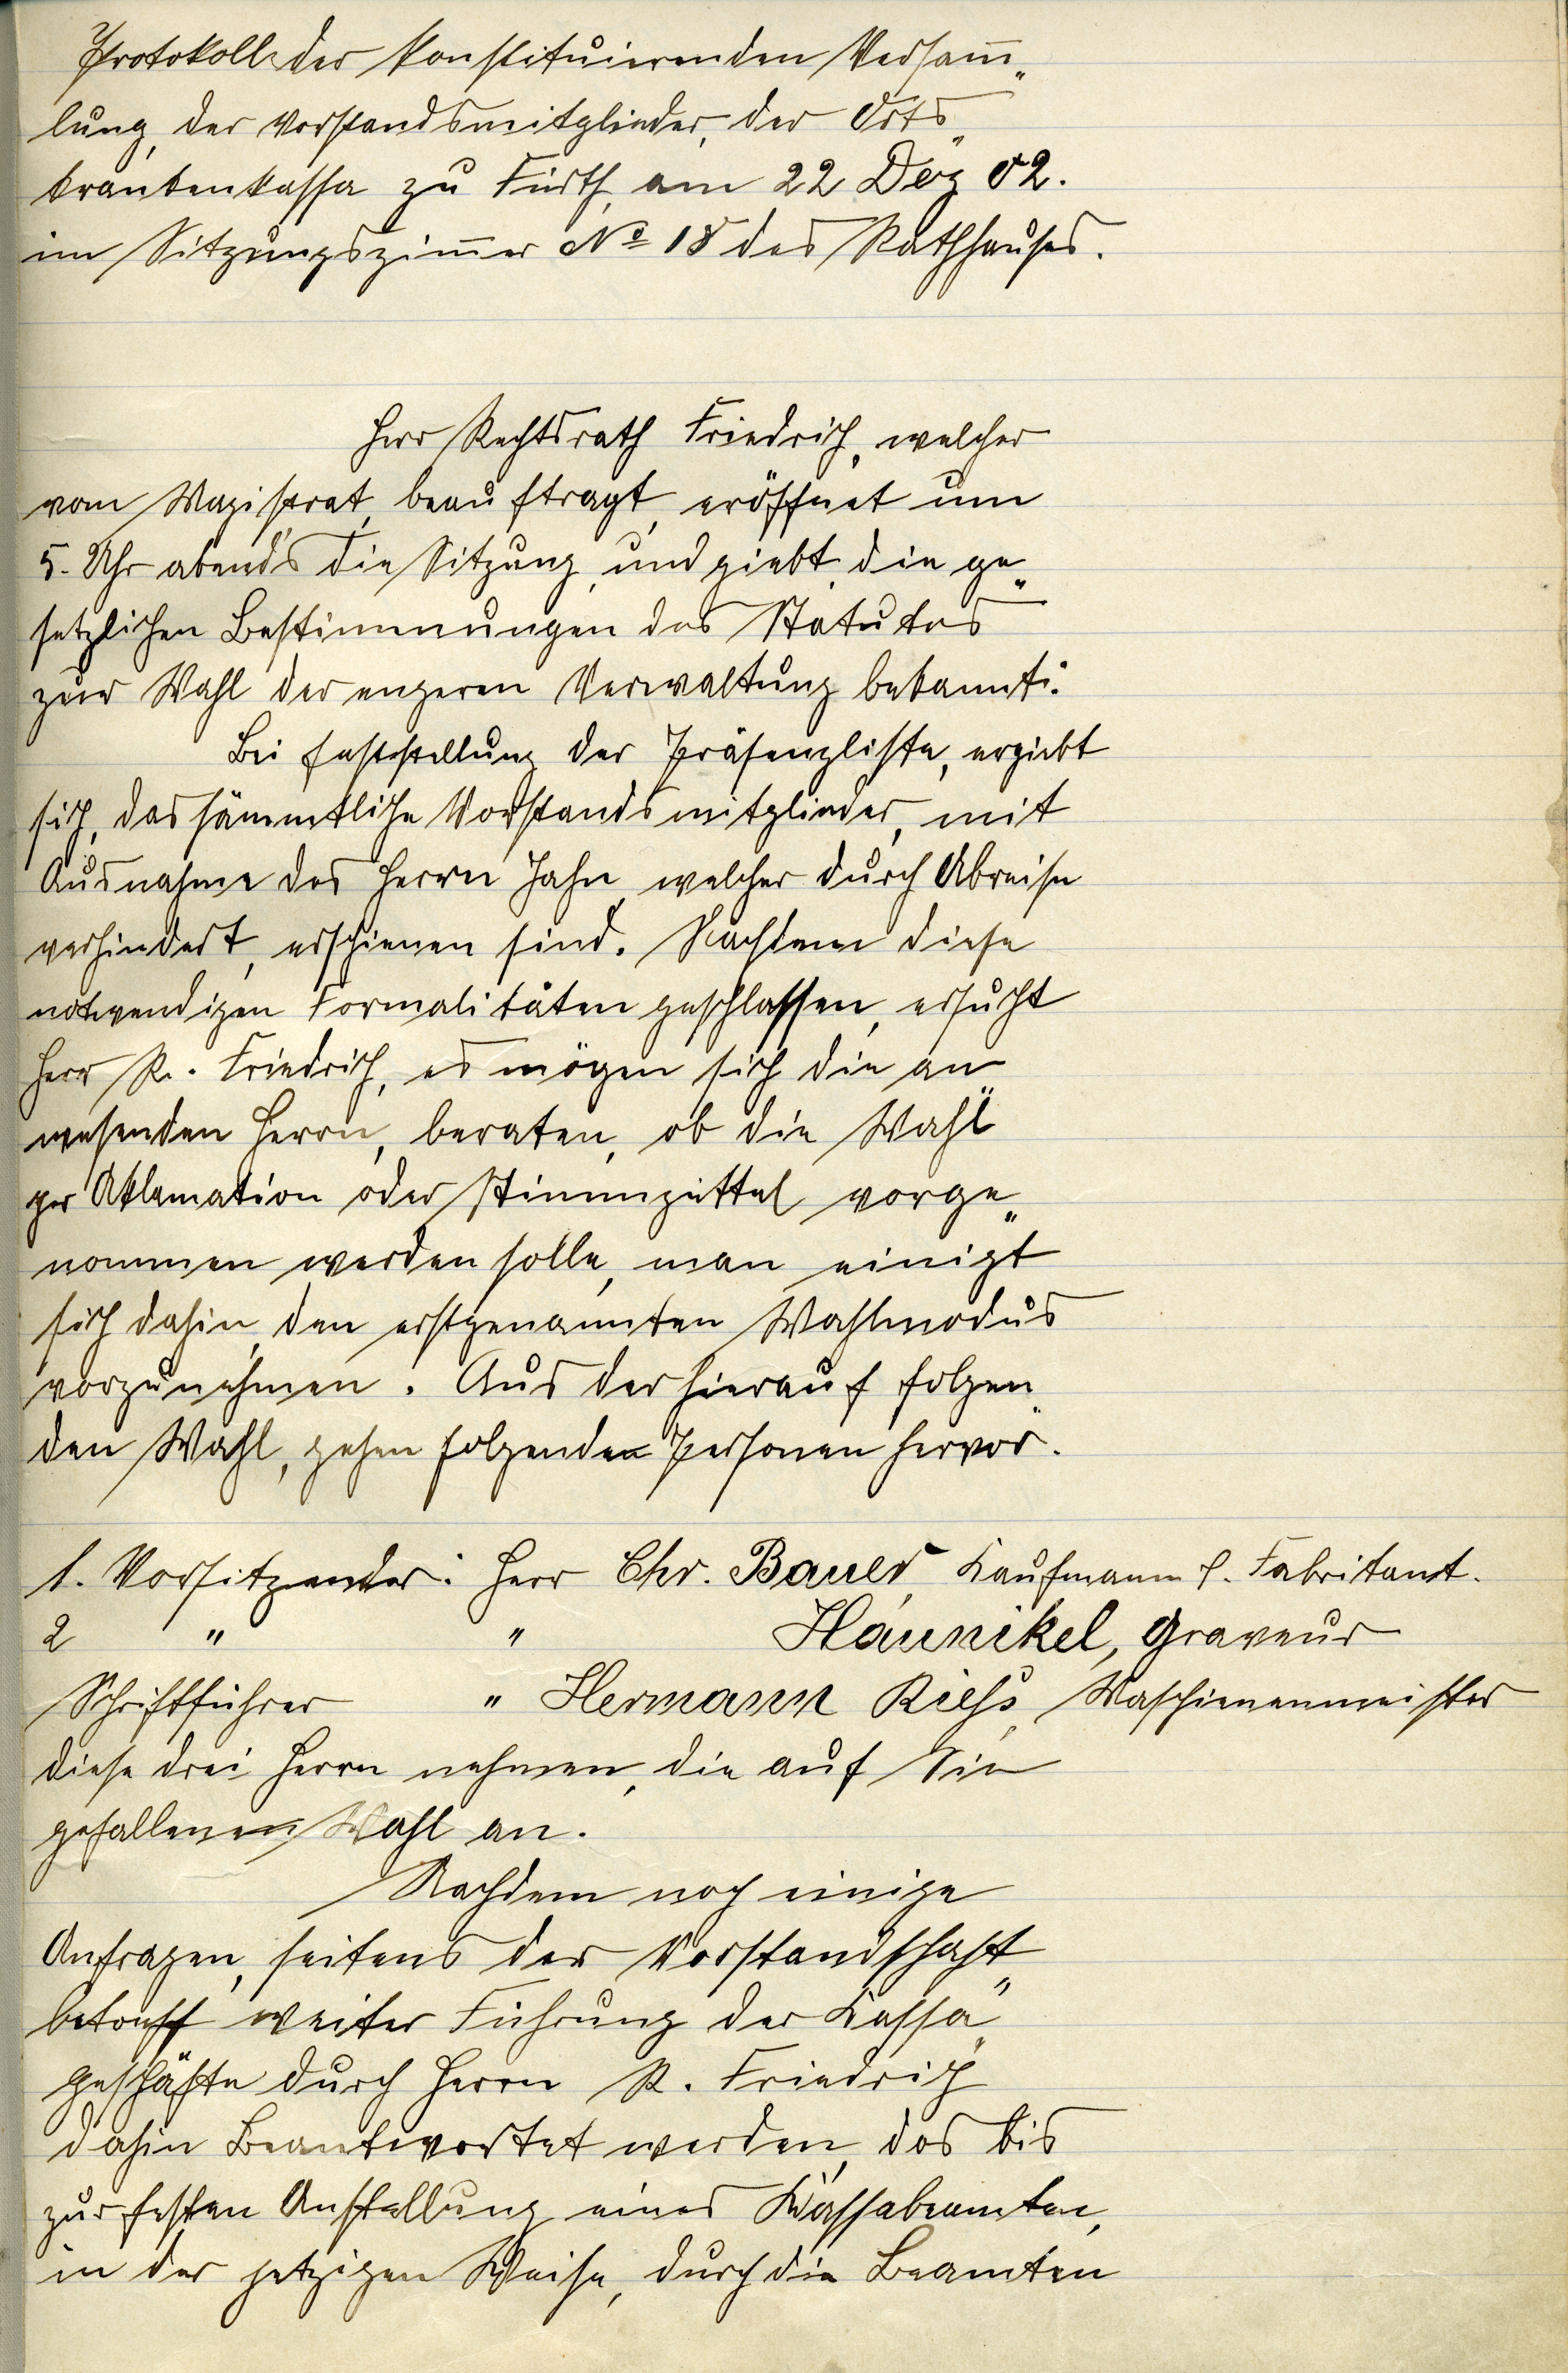 Protokoll der konstituierenden Versam̅„
lung, der Vorstandsmitglieder, der Orts„
krankenkassa zu Fürth, am 22 Dez 02.
im Sitzungszim̅er No 18 des Rathhauses.
Herr Rechtsrath Friedrich, welcher
vom Magistrat, beauftragt, eröffnet um
5. Uhr abends die Sitzung, und giebt die ge„
setzlichen Bestimmungen des Statutes
zur Wahl der engeren Verwaltung bekannt:
Bei Feststellung der Präsenzliste, ergiebt
sich, das sämmtliche Vorstandsmitglieder, mit
Ausnahme des Herrn Jahn, welcher durch Abreise
verhindert, erschienen sind. Nachdem diese
notwendigen Formalitäten geschlossen, ersucht
Herr R. Friedrich, es mögen sich die an„
wesenden Herrn, beraten, ob die Wahl
per Aklamation oder Stimmzettel vorge„
nommen werden solle, man einigt
sich dahin, den erstgenannten Wahlmodus
vorzunehmen. Aus der hierauf folgen„
den Wahl, gehen folgenden Personen hervor.
1. Vorsitzender: Herr Chr. Bauer, Kaufmann &. Fabrikant.
2 " " Häunikel, Graveur
Schriftführer " Hermann Rieß, Maschienenmeister
diese drei Herrn nehmen, die auf Sie
gefallenen Wahl an.
Nachdem noch einige
Anfragen, seitens der Vorstandschaft„
betreff weiter Führung der Kassa„
geschäfte durch Herrn R. Friedrich
dahin Beantwortet werden, das bis
zur festen Anstellung eines Kassabeamten,
in der jetzigen Weise, durch die Beamten